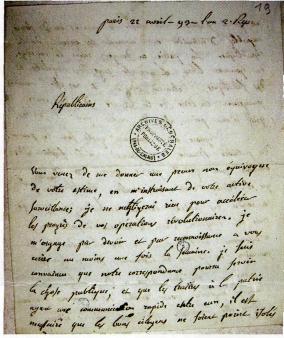 19
paris 22 avril - 93 - l'an 2. Rep.
Républicains
ARCHIVES GÉNÉRALES
Vous venez de me donner une preuve non équivoque
de votre estime, en m'instruisant de votre active
surveillance; je ne négligerai rien pour accélérer
les progrès de vos opérations révolutionnaires. je
m'engage par devoir et par reconnaissance a vous
écrire au moins une fois la semaine. je suis
convaincu que notre correspondance pourra servir
la chose publique, et que les traitres à la patrie
ayant une communication rapide entre eux, il est
nécessaire que les bons citoyens ne soient point isolés